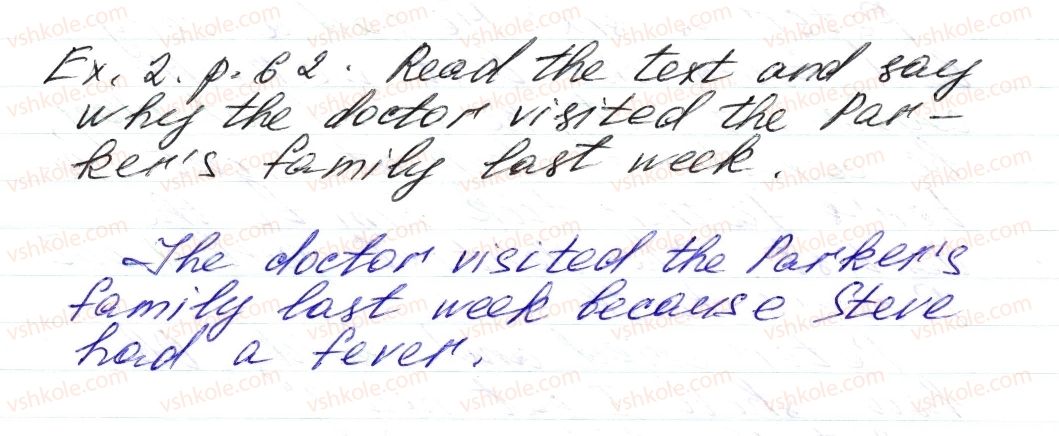 Ex. 2. p. 62. Read the text and say
why the doctor visited the Par-
ker's family last week.
The doctor visited the Parker's
family last week because Steve
had a fever.